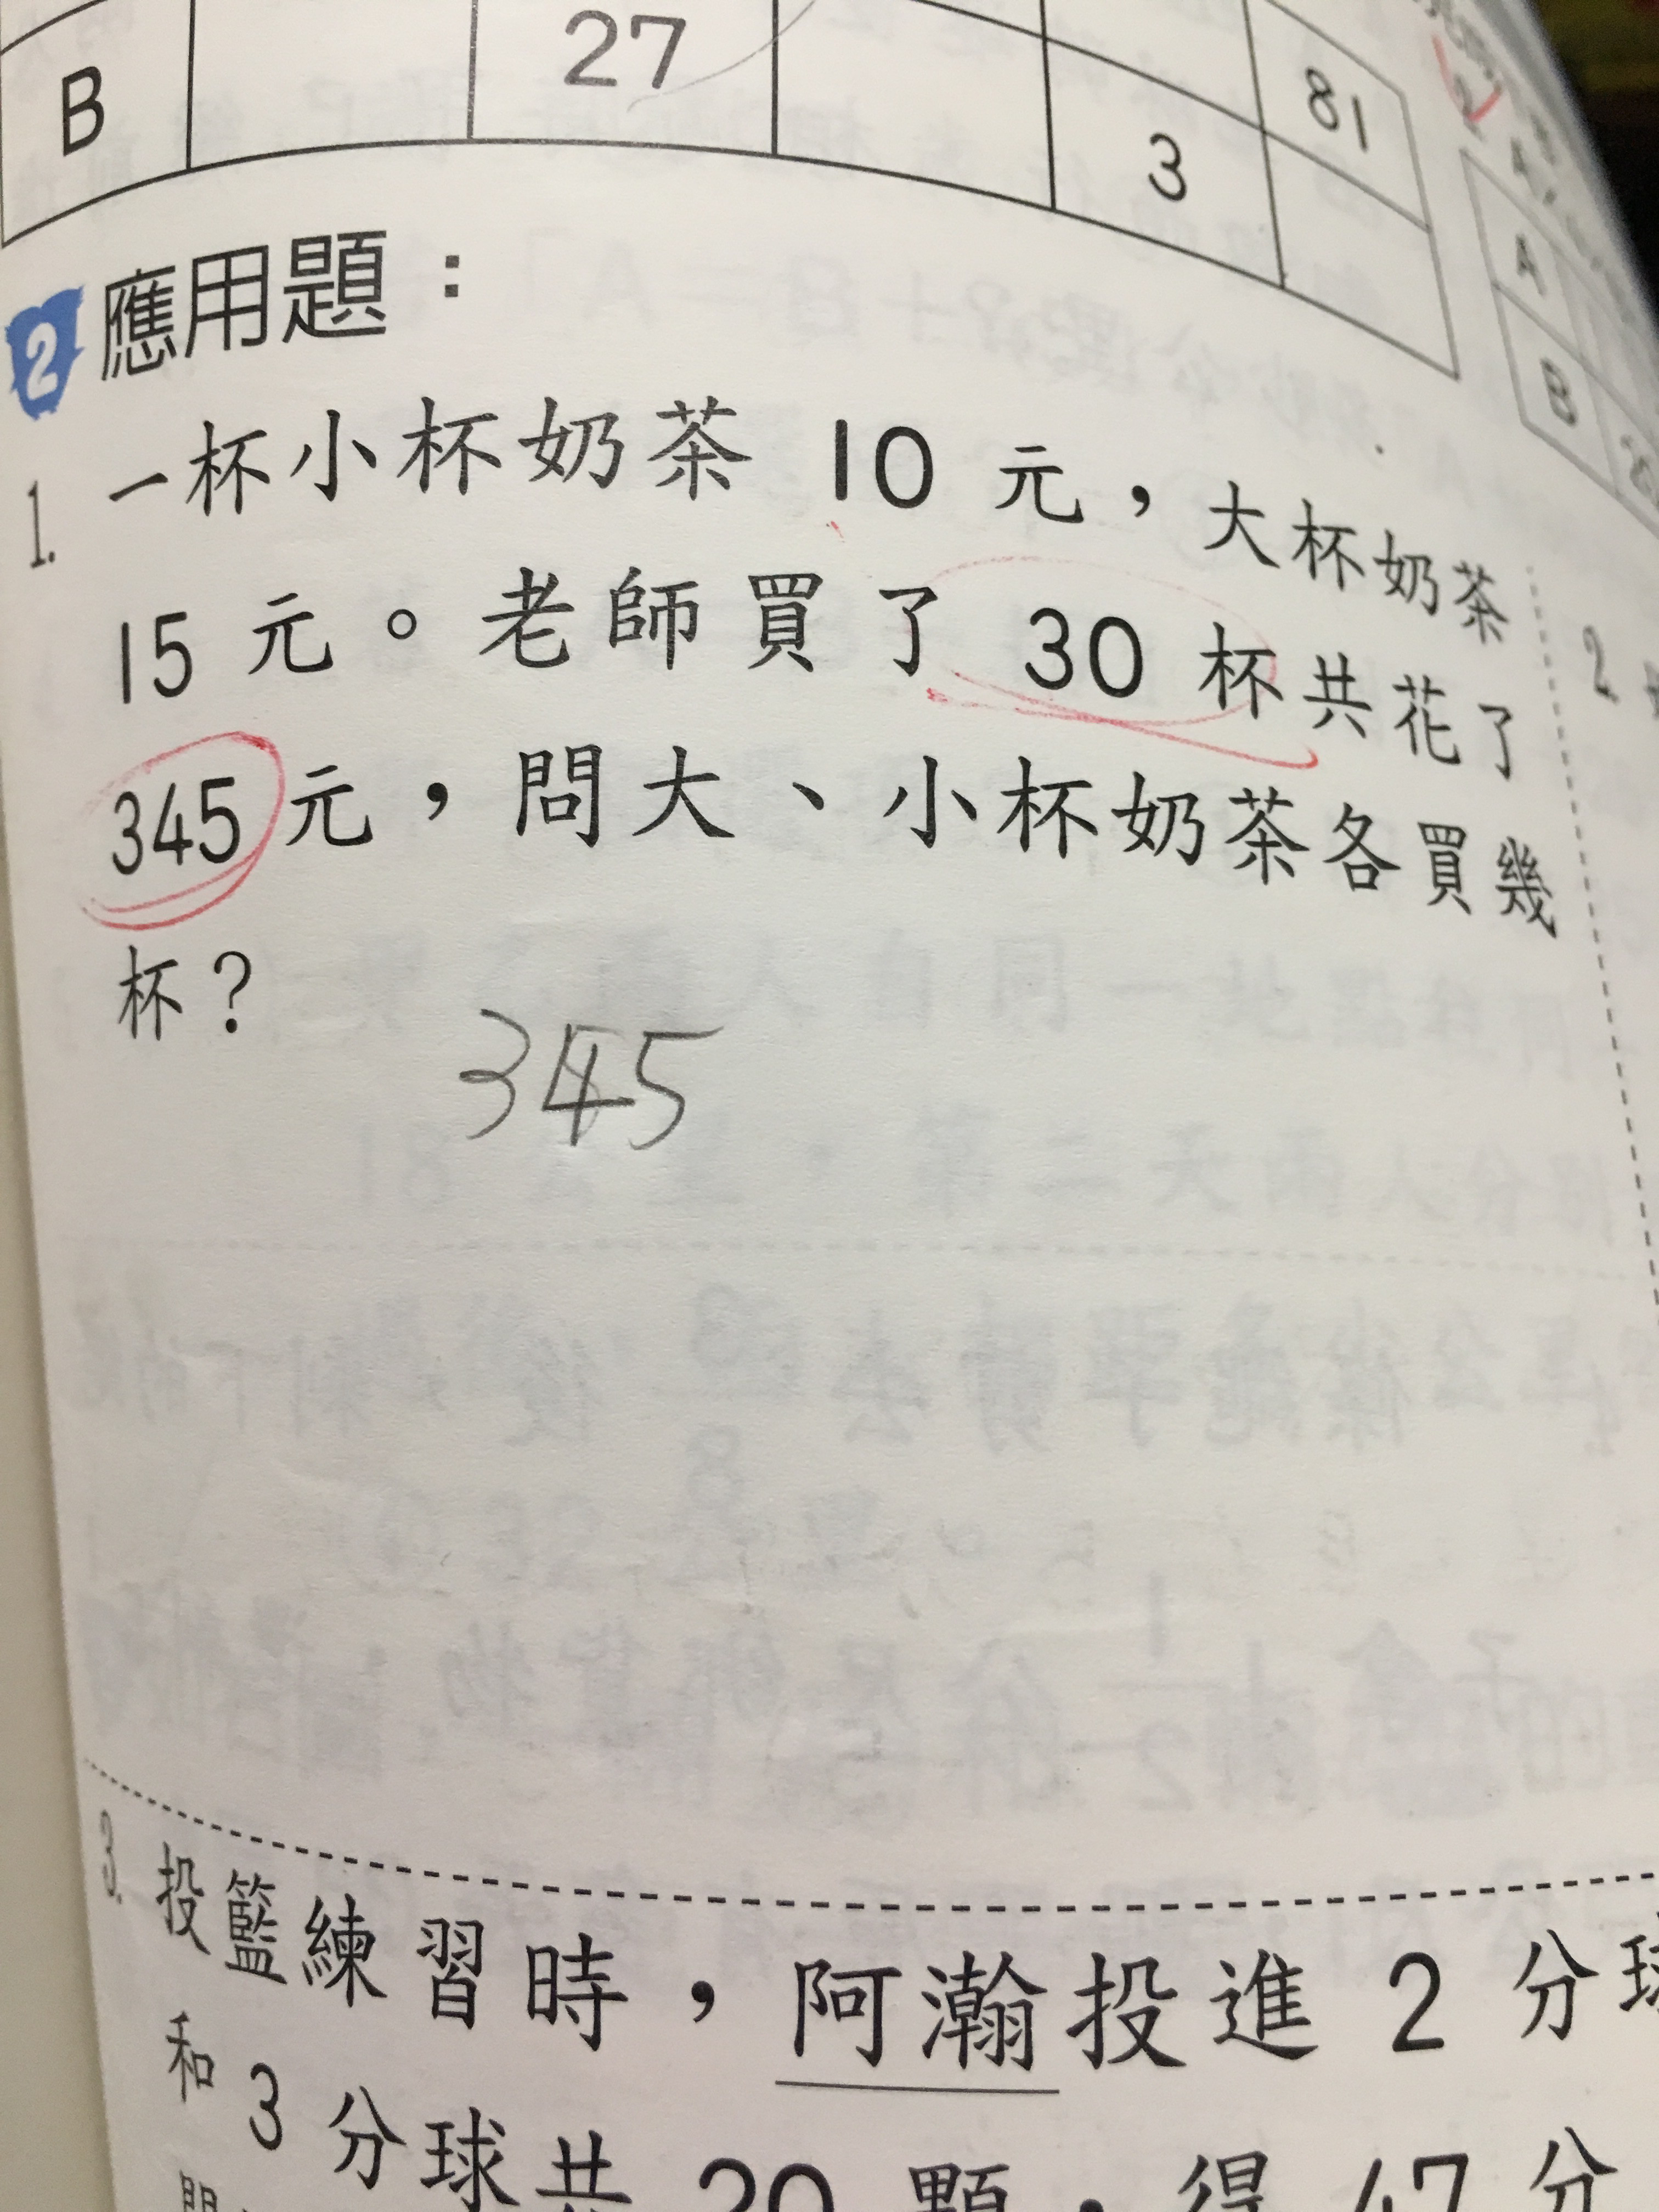 B 27 3 81
2 應用題：
1. 一杯小杯奶茶 10 元，大杯奶茶
15 元。老師買了 30 杯共花了
345 元，問大、小杯奶茶各買幾
杯？
345
A
B
2.
3. 投籃練習時，阿瀚投進 2 分球
和 3 分球共 20 顆，得 47 分